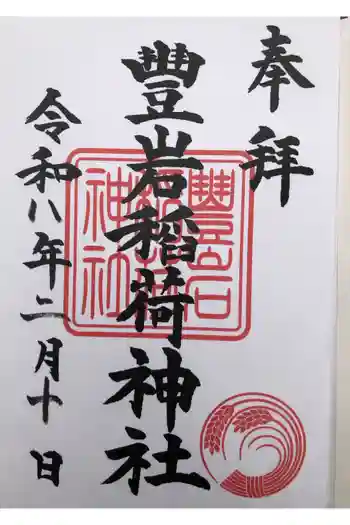 奉拝
豐岩稲荷神社
豐岩稲荷神社
令和八年二月十日